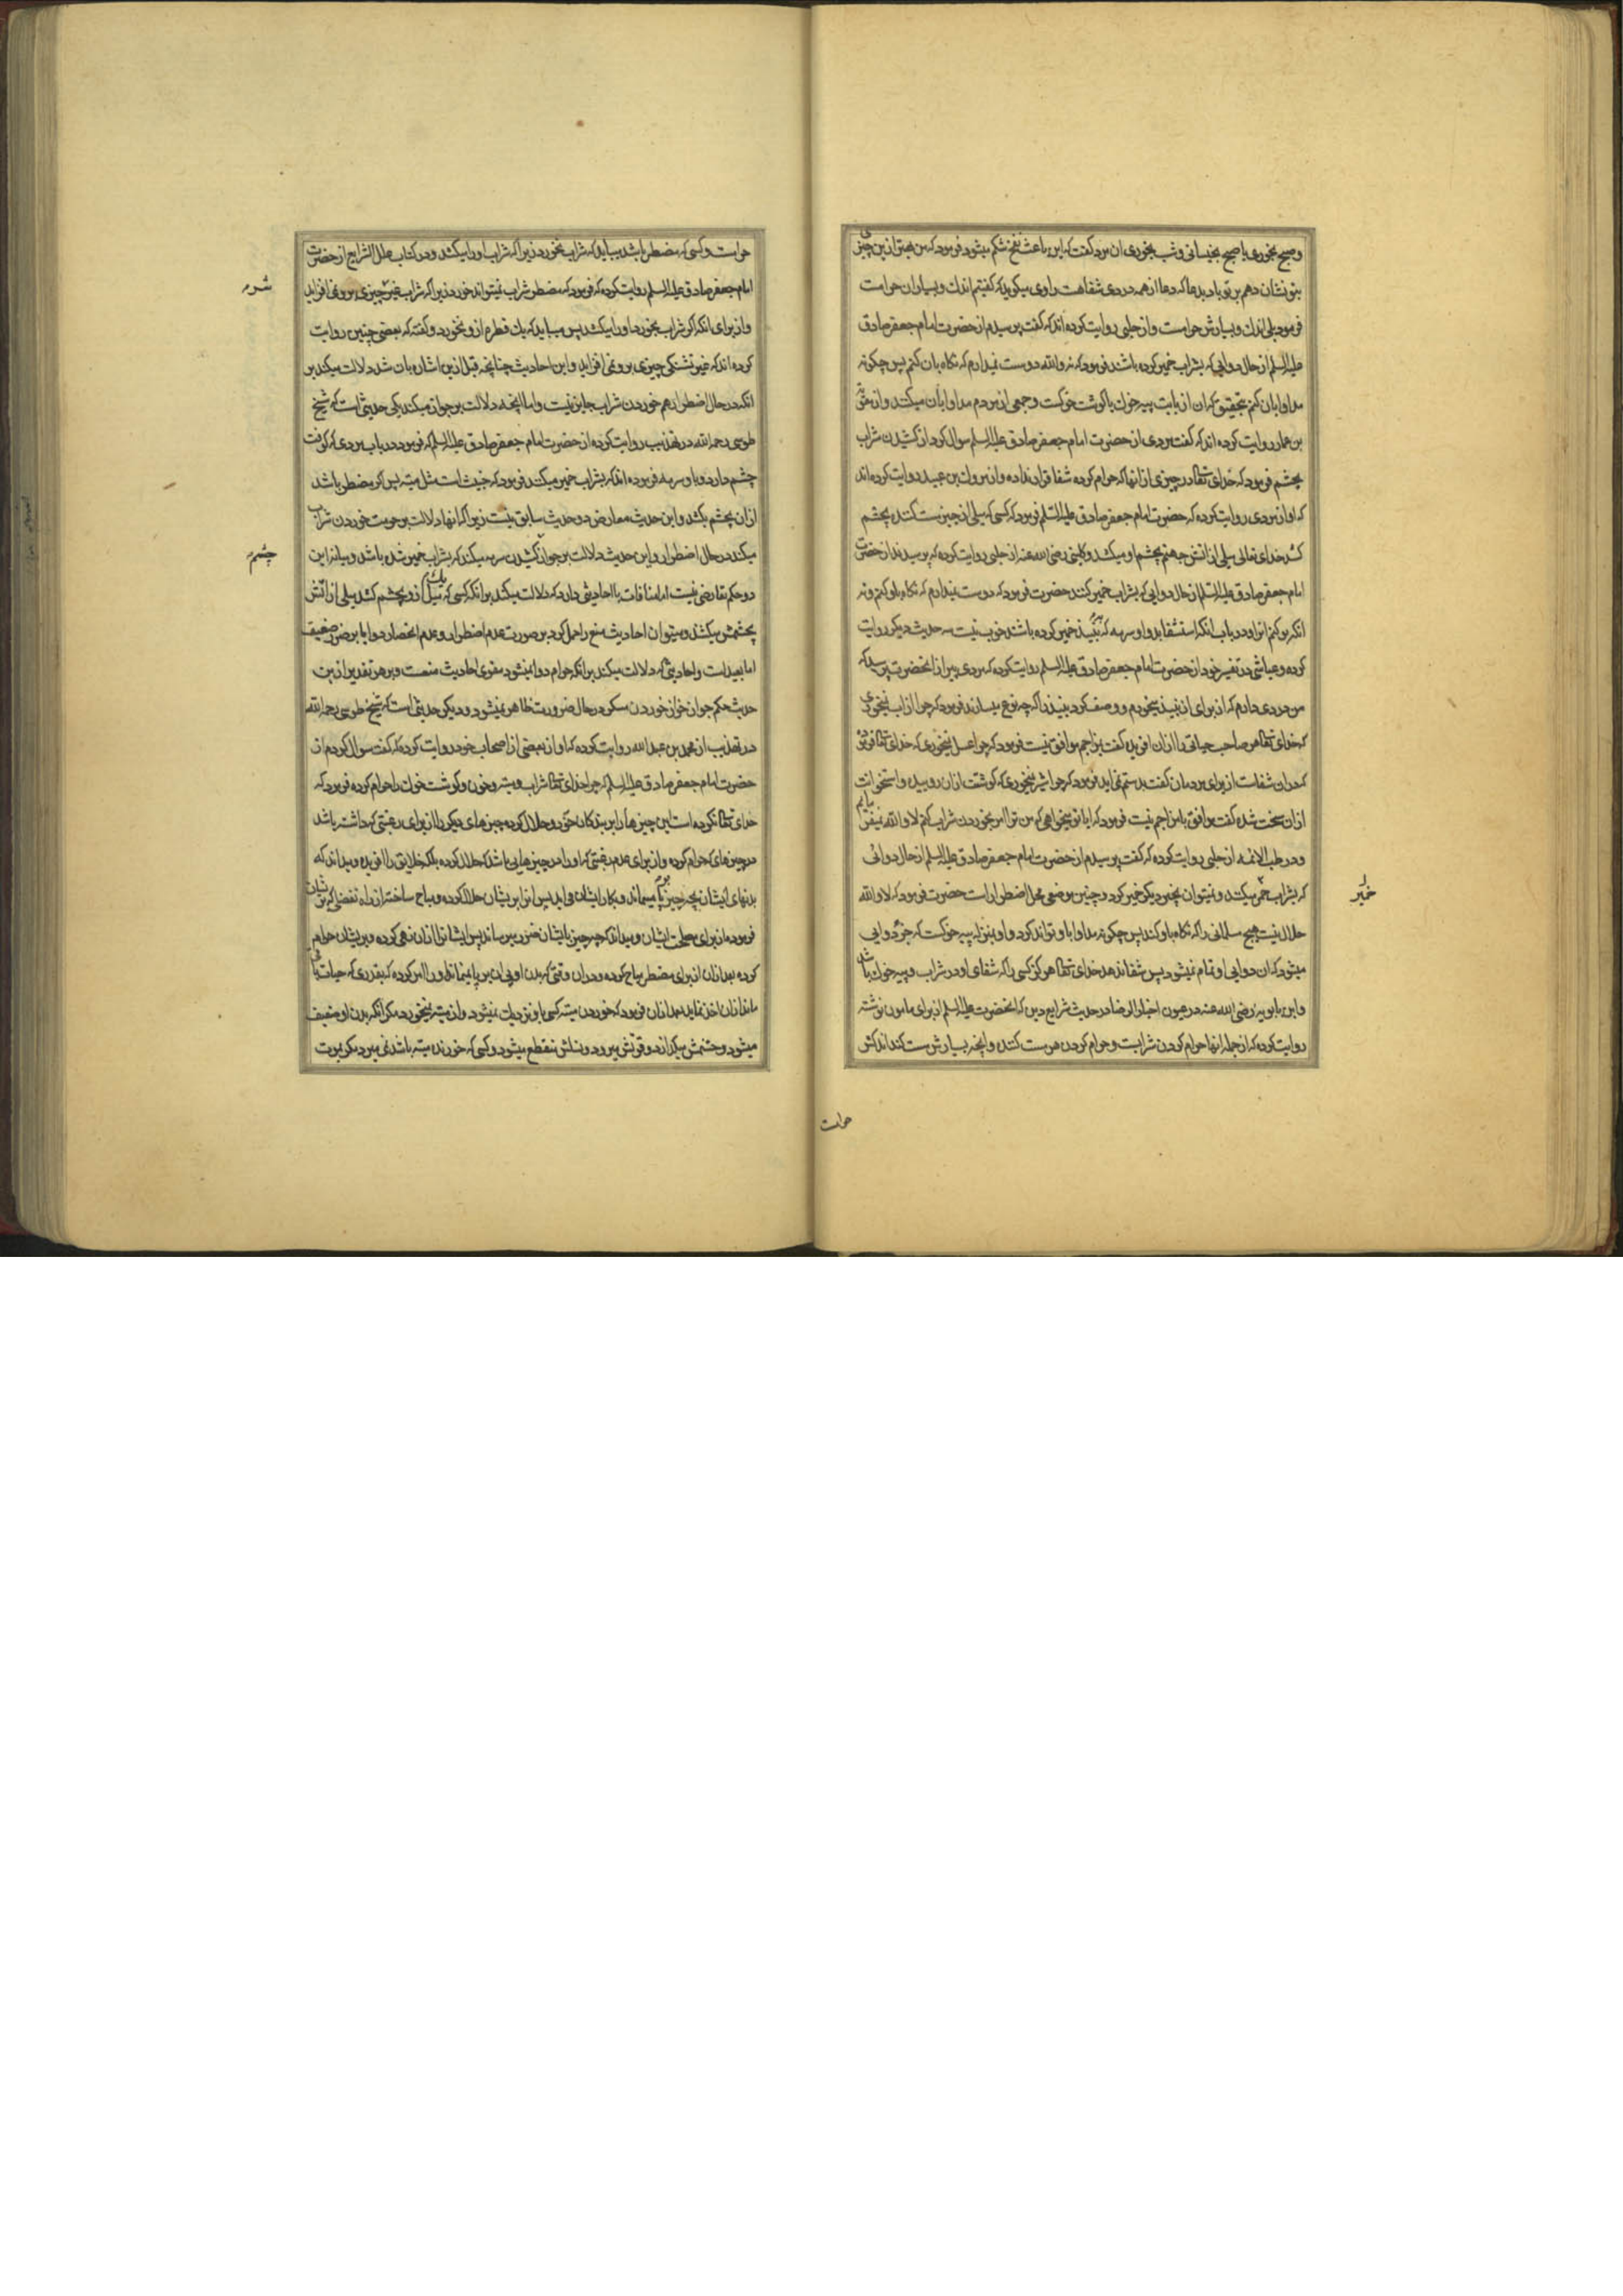 و صبح بخوری یا صبح بخیسانی و شب بخوری ان مرد گفت که این باعث نفخ شکم میشود فرمود که من بهتر ازین چیزی
بتو نشان دهم بر تو باد بدعا که دعا از همه دردی شفاهت راوی میکوید که کفتیم اندك و بسیار ان حرامست
فرمود بلی اندك و بسیارش حرامست و از حلبی روایت کرده اند که کفت پرسیدم از حضرت امام جعفر صادق
علیه السلم از حال دوایی که بشراب خمیر کرده باشند فرمود که نه والله دوست نمیدارم که نکاه بان کنم پس چکونه
مداوا بان کنم بتحقیق که ان از بابت پیه خوك یا کوشت خوکست و جمعی از مردم مداوا بان میکنند و از
بن عمار روایت کرده اند که کفت مردی از حضرت امام جعفر صادق علیه السلم سوال کرد از کشیدن شراب
بچشم فرمود که خدای تعالی در چیزی از انها که حرام کرده شفا قرار نداده و از مروك بن عبید روایت کرده اند
که او از مردی روایت کرده که حضرت امام جعفر صادق علیه السلم فرمود که کسی که میلی از چیز مست کننده بچشم
کشد خدای تعالی میلی از اتش جهنم بچشم او میکشد و کلینی رضی الله عنه از حلبی روایت کرده که پرسیدند از حضرت
امام جعفر صادق علیه السلم از حال دوایی که بشراب خمیر کنند حضرت فرمود که دوست نمیدارم که نکاه باو کنم و نه
انکه بو کنم انرا و در باب انکه استشفا بدوا و سرمه که بنبیذ خمیر کرده باشند خوب نیست سه حدیث دیکر روایت
کرده و عیاشی در تفسیر خود از حضرت امام جعفر صادق علیه السلم روایت کرده که مردی پیر از انحضرت پرسید که
من دردی دارم که از برای ان نبیذ میخورم و وصف کرد نبیذ را که چه نوع میسازند فرمود که چرا از اب نمیخوری
که خدای تعالی هر صاحب حیاتی را از ان افریده کفت بمزاجم موافق نیست فرمود که چرا عسل نمیخوری که خدای تعالی فرموده
که دران شفاست از برای مردمان کفت بدستم نمی اید فرمود که چرا شیر نمیخوری که کوشتت ازان روییده و استخوانت
ازان سخت شده کفت موافق با مزاجم نیست فرمود که ایا تو میخواهی که من ترا امر بخوردن شراب کنم لا والله نمیفرمایم
و در طب الائمه از حلبی روایت کرده که کفت پرسیدم از حضرت امام جعفر صادق علیه السلم از حال دوائی
که بشراب خمیر میکنند و نمیتوان بچیز دیکر خمیر کرد و چنین موضعی محل اضطرار است حضرت فرمود که لا والله
حلال نیست هیچ مسلمانی را که نکاه باو کند پس چکونه مداوا باو تواند کرد و او بمنزله پیه خوکست که جزو دوایی
میشود که ان دوایی او تمام نمیشود پس شفا ندهد خدای تعالی هرکز کسی را که شفای او در شراب و پیه خوك باشد
و ابن بابویه رضی الله عنه در عیون اخبار الرضا در حدیث شرایع دین که انحضرت علیه السلم از برای مامون نوشته
روایت کرده که از جمله انها حرام کردن شرابست و حرام کردن هر مست کننده و انچه بسیارش مست کند اندکش
خمیر
حرامست
حرامست و کسی که مضطر باشد میباید که شراب نخورد زیرا که شراب او را میکشد و در کتاب علل الشرایع از حضرت
امام جعفر صادق علیه السلم روایت کرده که فرمود که مضطر شراب نمیتواند خورد زیرا که شراب غیر چیزی برو نمی افزاید
و از برای انکه اکر شراب بخورد او را میکشد پس میباید که یك قطره ازو نخورد و کفته که بعضی چنین روایت
کرده اند که غیر تشنکی چیزی برو نمی افزاید و این احادیث چنانچه قبل ازین اشاره بان شد دلالت میکند بر
انکه در حال اضطرار هم خوردن شراب جایز نیست و اما انچه دلالت بر جواز میکند یکی حدیثی است که شیخ
طوسی رحمه الله در تهذیب روایت کرده از حضرت امام جعفر صادق علیه السلم که فرمود در باب مردی که کوفت
چشم دارد و با و سرمه فرموده اند که بشراب خمیر میکنند فرمود که خبیث است مثل میته پس اکر مضطر باشد
ازان بچشم بکشد و این حدیث معارض دو حدیث سابق نیست زیرا که انها دلالت بر حرمت خوردن شراب
میکند در حال اضطرار و این حدیث دلالت بر جواز کشیدن سرمه میکند که بشراب خمیر شده باشد و میانه این
دو حکم تعارضی نیست اما منافات با احادیثی دارد که دلالت میکند بر انکه کسی که یك میل ازو بچشم کشد میلی از اتش
بچشمش میکشند و میتوان احادیث منع را حمل کرد بر صورت عدم اضطرار و عدم انحصار دوا یا بر مرض ضعیف
اما بعید است و احادیثی که دلالت میکند بر انکه حرام دوا نمیشود مقوی احادیث منعست و بر هر تقدیر ازین
حدیث حکم جواز خوردن مسکر در حال ضرورت ظاهر نمیشود و دیکر حدیثی است که شیخ طوسی رحمه الله
در تهذیب از محمد بن عبد الله روایت کرده که او از بعضی از اصحاب خود روایت کرده که کفت سوال کردم از
حضرت امام جعفر صادق علیه السلم که چرا خدای تعالی شراب و میته و خون و کوشت خوك را حرام کرده فرمود که
خدای تعالی نکرده است این چیزها را بر بندکان خود و حلال کرده چیزهای دیکر را از برای رغبتی که داشته باشد
در چیزهای که حرام کرده و از برای عدم رغبتی که او را در چیزهایی باشد که حلال کرده بلکه خلایق را افریده و میداند که
بدنهای ایشان بچه چیز برپا میماند و بکار ایشان می اید پس انرا بر ایشان حلال کرده و مباح ساخته از راه تفضلی که بر ایشان
فرموده از برای مصلحت ایشان و میداند که چه چیز بایشان ضرر میرساند پس ایشانرا ازان نهی کرده و بر ایشان حرام
کرده بعد ازان از برای مضطر مباح کرده و دران وقتی که بدن او بی ان برپا نمیماند او را امر کرده که بقدری که حیات باقی
ماند ازان اخذ نماید بعد ازان فرمود که خوردن میته کسی باو نزدیك نمیشود و از میته نمیخورد مکر انکه بدن او ضعیف
میشود و جسمش میکدازد و قوتش میرود و نسلش منقطع میشود و کسی که خورنده میته باشد نمی میرد مکر بمرت
شر
چشم